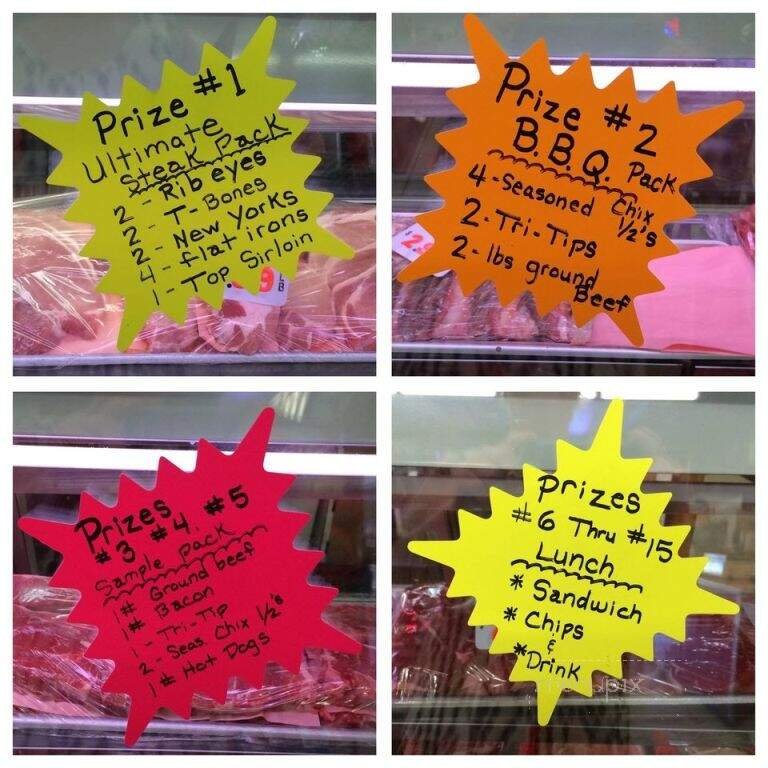 Prize #1
Ultimate
Steak Pack
2 - Rib eyes
2 - T-Bones
2 - New Yorks
4 - flat irons
1 - Top Sirloin
Prize #2
B.B.Q. Pack
4 - Seasoned Chix
1/2's
2 - Tri-Tips
2 - lbs ground
Beef
Prizes
#3 #4 #5
Sample pack
1# Ground beef
1# Bacon
1 - Tri-Tip
2 - Seas. Chix 1/2's
1# Hot Dogs
Prizes
#6 Thru #15
Lunch
* Sandwich
* Chips
&
* Drink